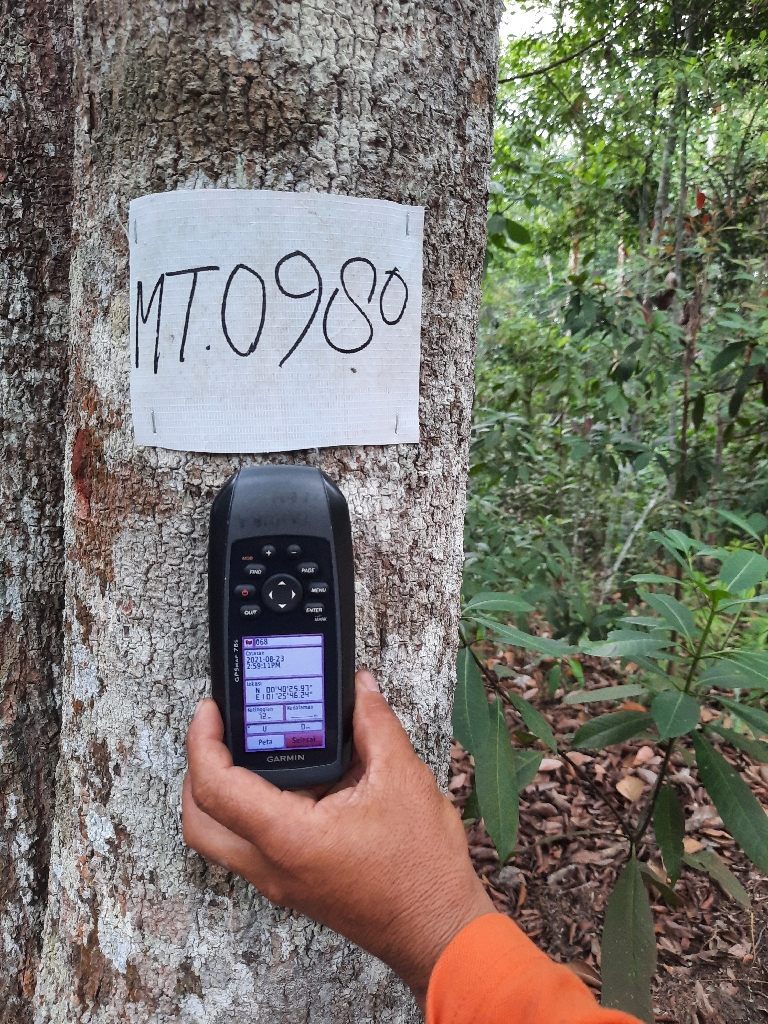 MT.0980
MOB
+ -
FIND PAGE
MENU
QUIT ENTER
MARK
GPSMAP 78s
068
Catatan
2021-08-23
2:59:11PM
Lokasi
N 00°40'25.97"
E101°25'46.24"
Ketinggian Kedalaman
12
Peta Selesai
GARMIN